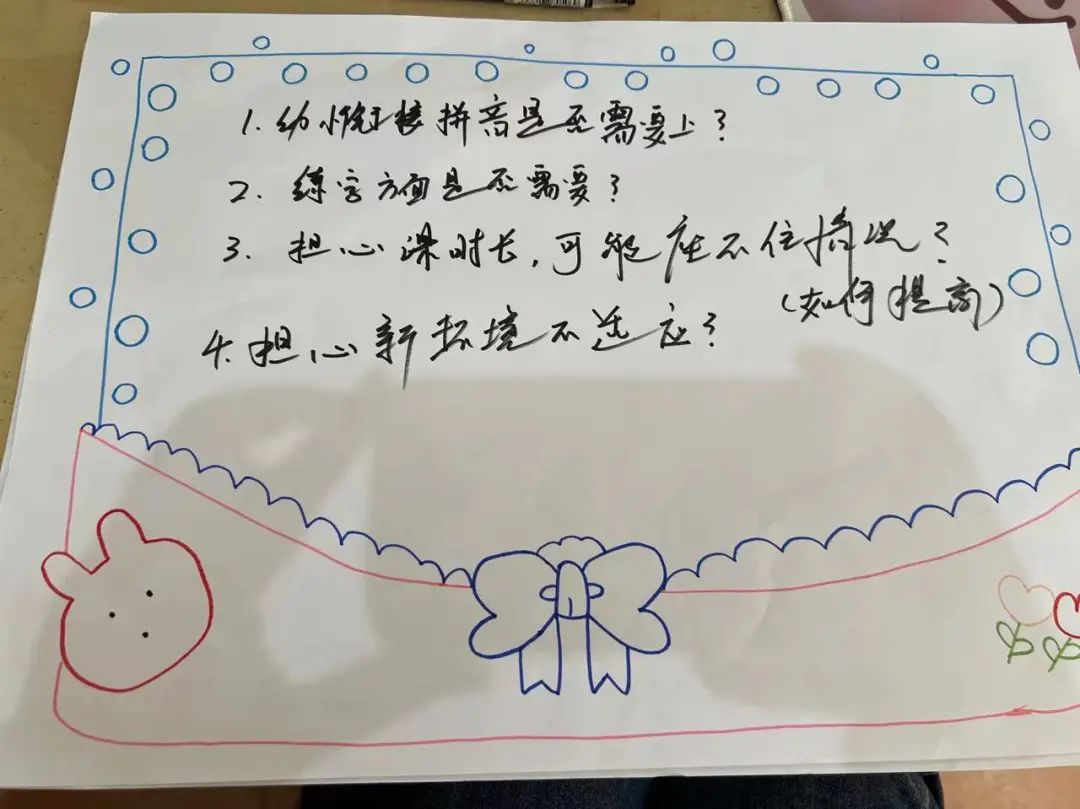 1. 幼小衔接拼音是否需要上?
2. 练字方面是否需要?
3. 担心课时长,可能座不住情况?
(如何提高)
4. 担心新环境不适应?